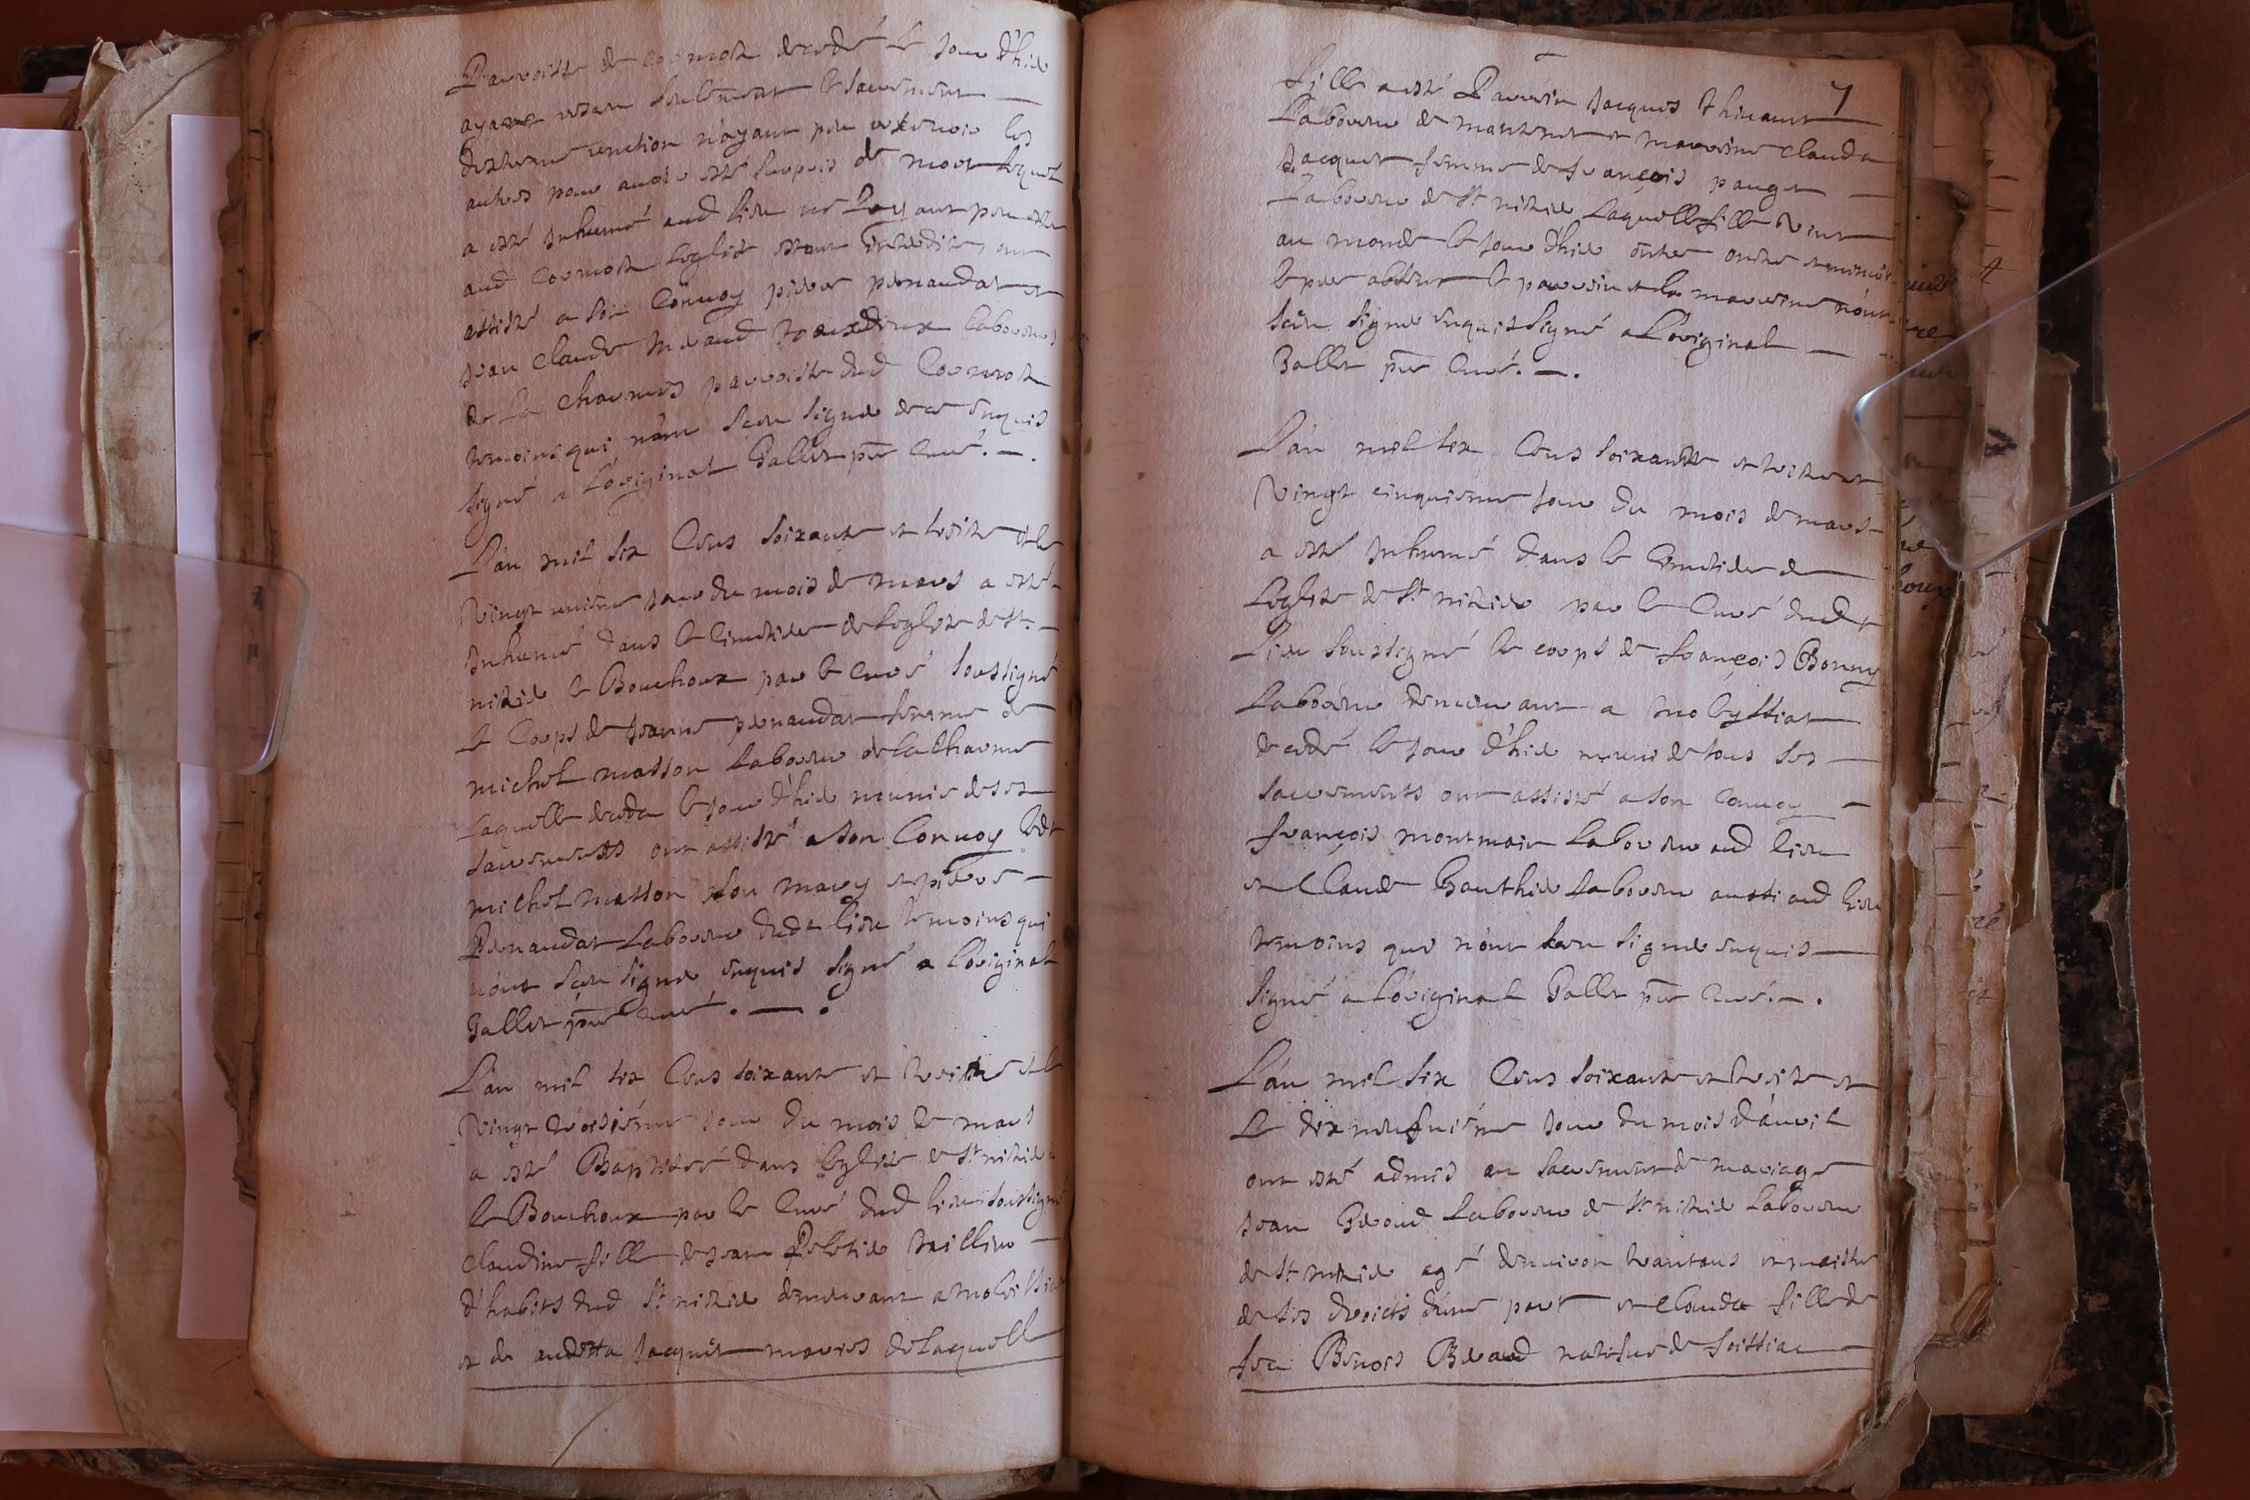 Parroisse de Cormoz decedé le jour d'hier
ayant receu seulement le sacrement
d'extreme unction n'ayant peu recevoir les
autres pour avoir esté surpris de mort lequel
a esté inhumé aud lieu ne layant peu estre
aud Cormoz leglise estant interdite, ont
assisté a son convoy pierre pernaudat et
jean claude laboureurs
de la charmes parroisse dud Cormoz
temoins qui n'ont sceu signer de ce enquis
signé a l'original Gallet ptre curé.
L'an mil six cens soixante et treize et le
vingt unieme jour du mois de mars a esté
inhumé dans le cimetiere de leglise de St
nizier le Bouchoux par le curé soussigné
le corps de jeanne pernaudat femme de
michel masson laboureur de la charme
laquelle deceda le jour d'hier munie de ses
sacrements ont assisté a son convoy ledt
michel masson son mary et pierre
Pernaudat laboureur dudt lieu temoins qui
n'ont sceu signer enquis signé a l'original
Gallet ptre curé.
L'an mil six cens soixante et treize et le
vingt troisiéme jour du mois de mars
a esté Baptisée dans leglise de St nizier
le Bouchoux par le curé dud lieu soussigné
claudine fille de jean Peletier tailleur
d'habits dud St nizier demeurant a
et de jacquet mariés de laquelle
7
fille a esté Parrein jacques Thicaut
laboureur de mantenet et marreine clauda
jacquet femme de françois pauget
laboureur de St nizier laquelle fille vint
au monde le jour d'hier entre onze et minuit
le pere absent le parrein et la marreine n'ont
sceu signer enquis signé a l'original
Gallet ptre curé.
L'an mil six cens soixante et treize et
vingt cinquieme jour du mois de mars
a esté inhumé dans le cimetiere de
leglise de St nizier par le curé dudt
lieu soussigné le corps de françois Bonny
laboureur demeurant a
decedé le jour d'hier muni de tous ses
sacrements ont assisté a son convoy
françois montmain laboureur aud lieu
et Claude Gauthier laboureur aussi aud lieu
temoins qui n'ont sceu signer enquis
signé a l'original Gallet ptre curé.
L'an mil six cens soixante et treize et
le dix neufuiéme jour du mois d'avril
ont esté admis au sacrement de mariage
jean laboureur de St nizier laboureur
de St nizier agé d'environ trantans et maistre
de ses droicts d'une part et Clauda fille de
feu Benois natifue de